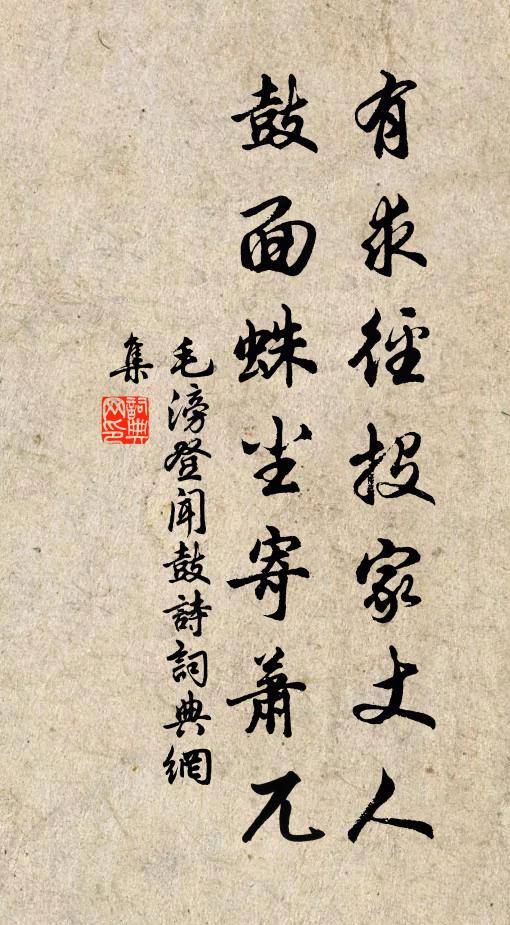 有求徑投家丈人
鼓面蛛尘寄蕭兀
毛滂登聞鼓詩詞典網
集
詞典
网印